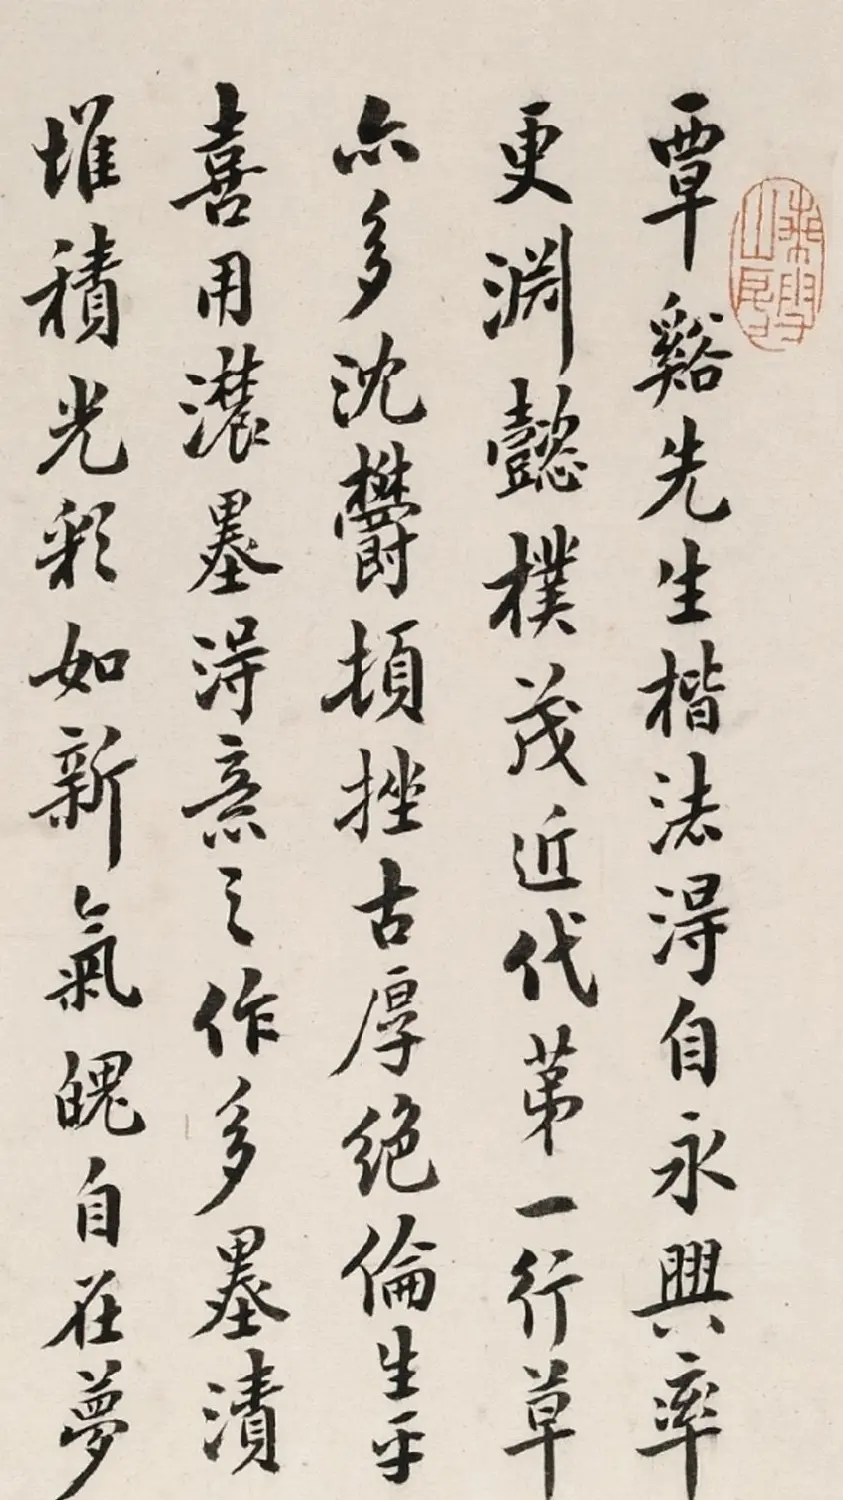 覃谿先生楷法得自永興率
更淵懿樸茂近代第一行草
亦多沈鬱頓挫古厚絕倫生平
喜用濃墨得意之作多墨漬
堆積光彩如新氣魄自在夢